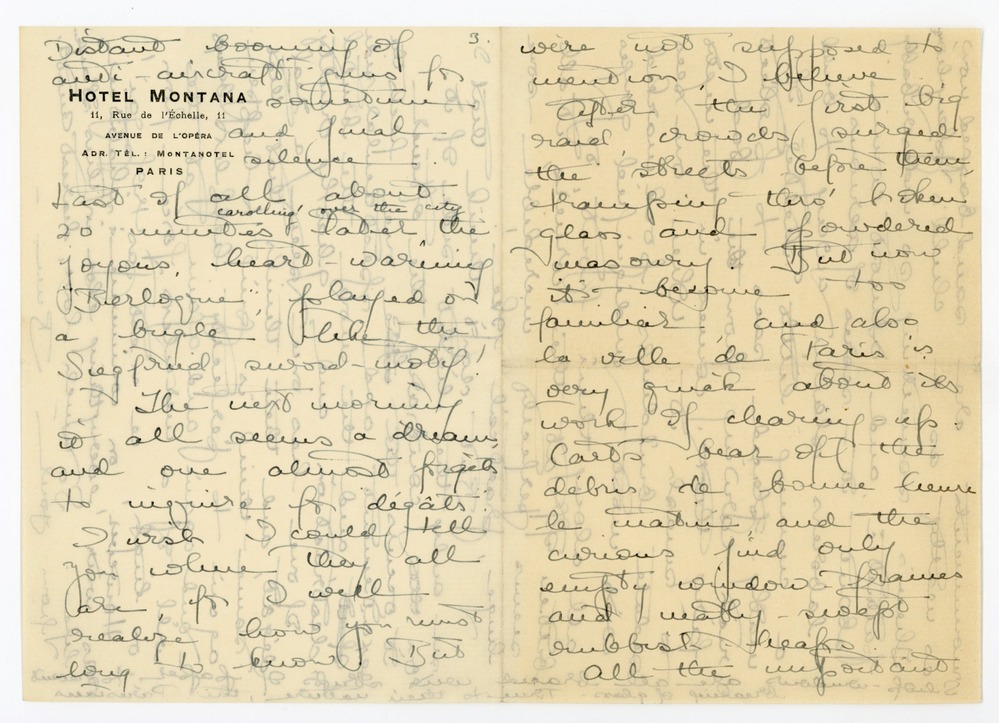 3.
Distant booming of
anti-aircraft guns for
HOTEL MONTANA
11, Rue de l'Échelle, 11
AVENUE DE L'OPÉRA
ADR. TÉL.: MONTANOTEL
PARIS
sometime
and final
silence
Last of all about
carolling over the city
20 minutes later the
joyous, heart-warming
"Berloque" played on
a bugle like the
Siegfried sword-motif!
The next morning
it all seems a dream
and one almost forgets
to inquire for "dégâts".
I wish I could tell
you where they all
are, for I well
realize how you must
long to know. But
were not supposed to
mention I believe.
After the first big
raid, crowds surged
the streets before them,
tramping thro' broken
glass and powdered
masonry. But now
it's become too
familiar and also
la ville de Paris is
very quick about its
work of clearing up.
Carts bear off the
débris de bonne heure
le matin and the
curious find only
empty window-frames
and neatly-swept
rubbish heaps.
All the important